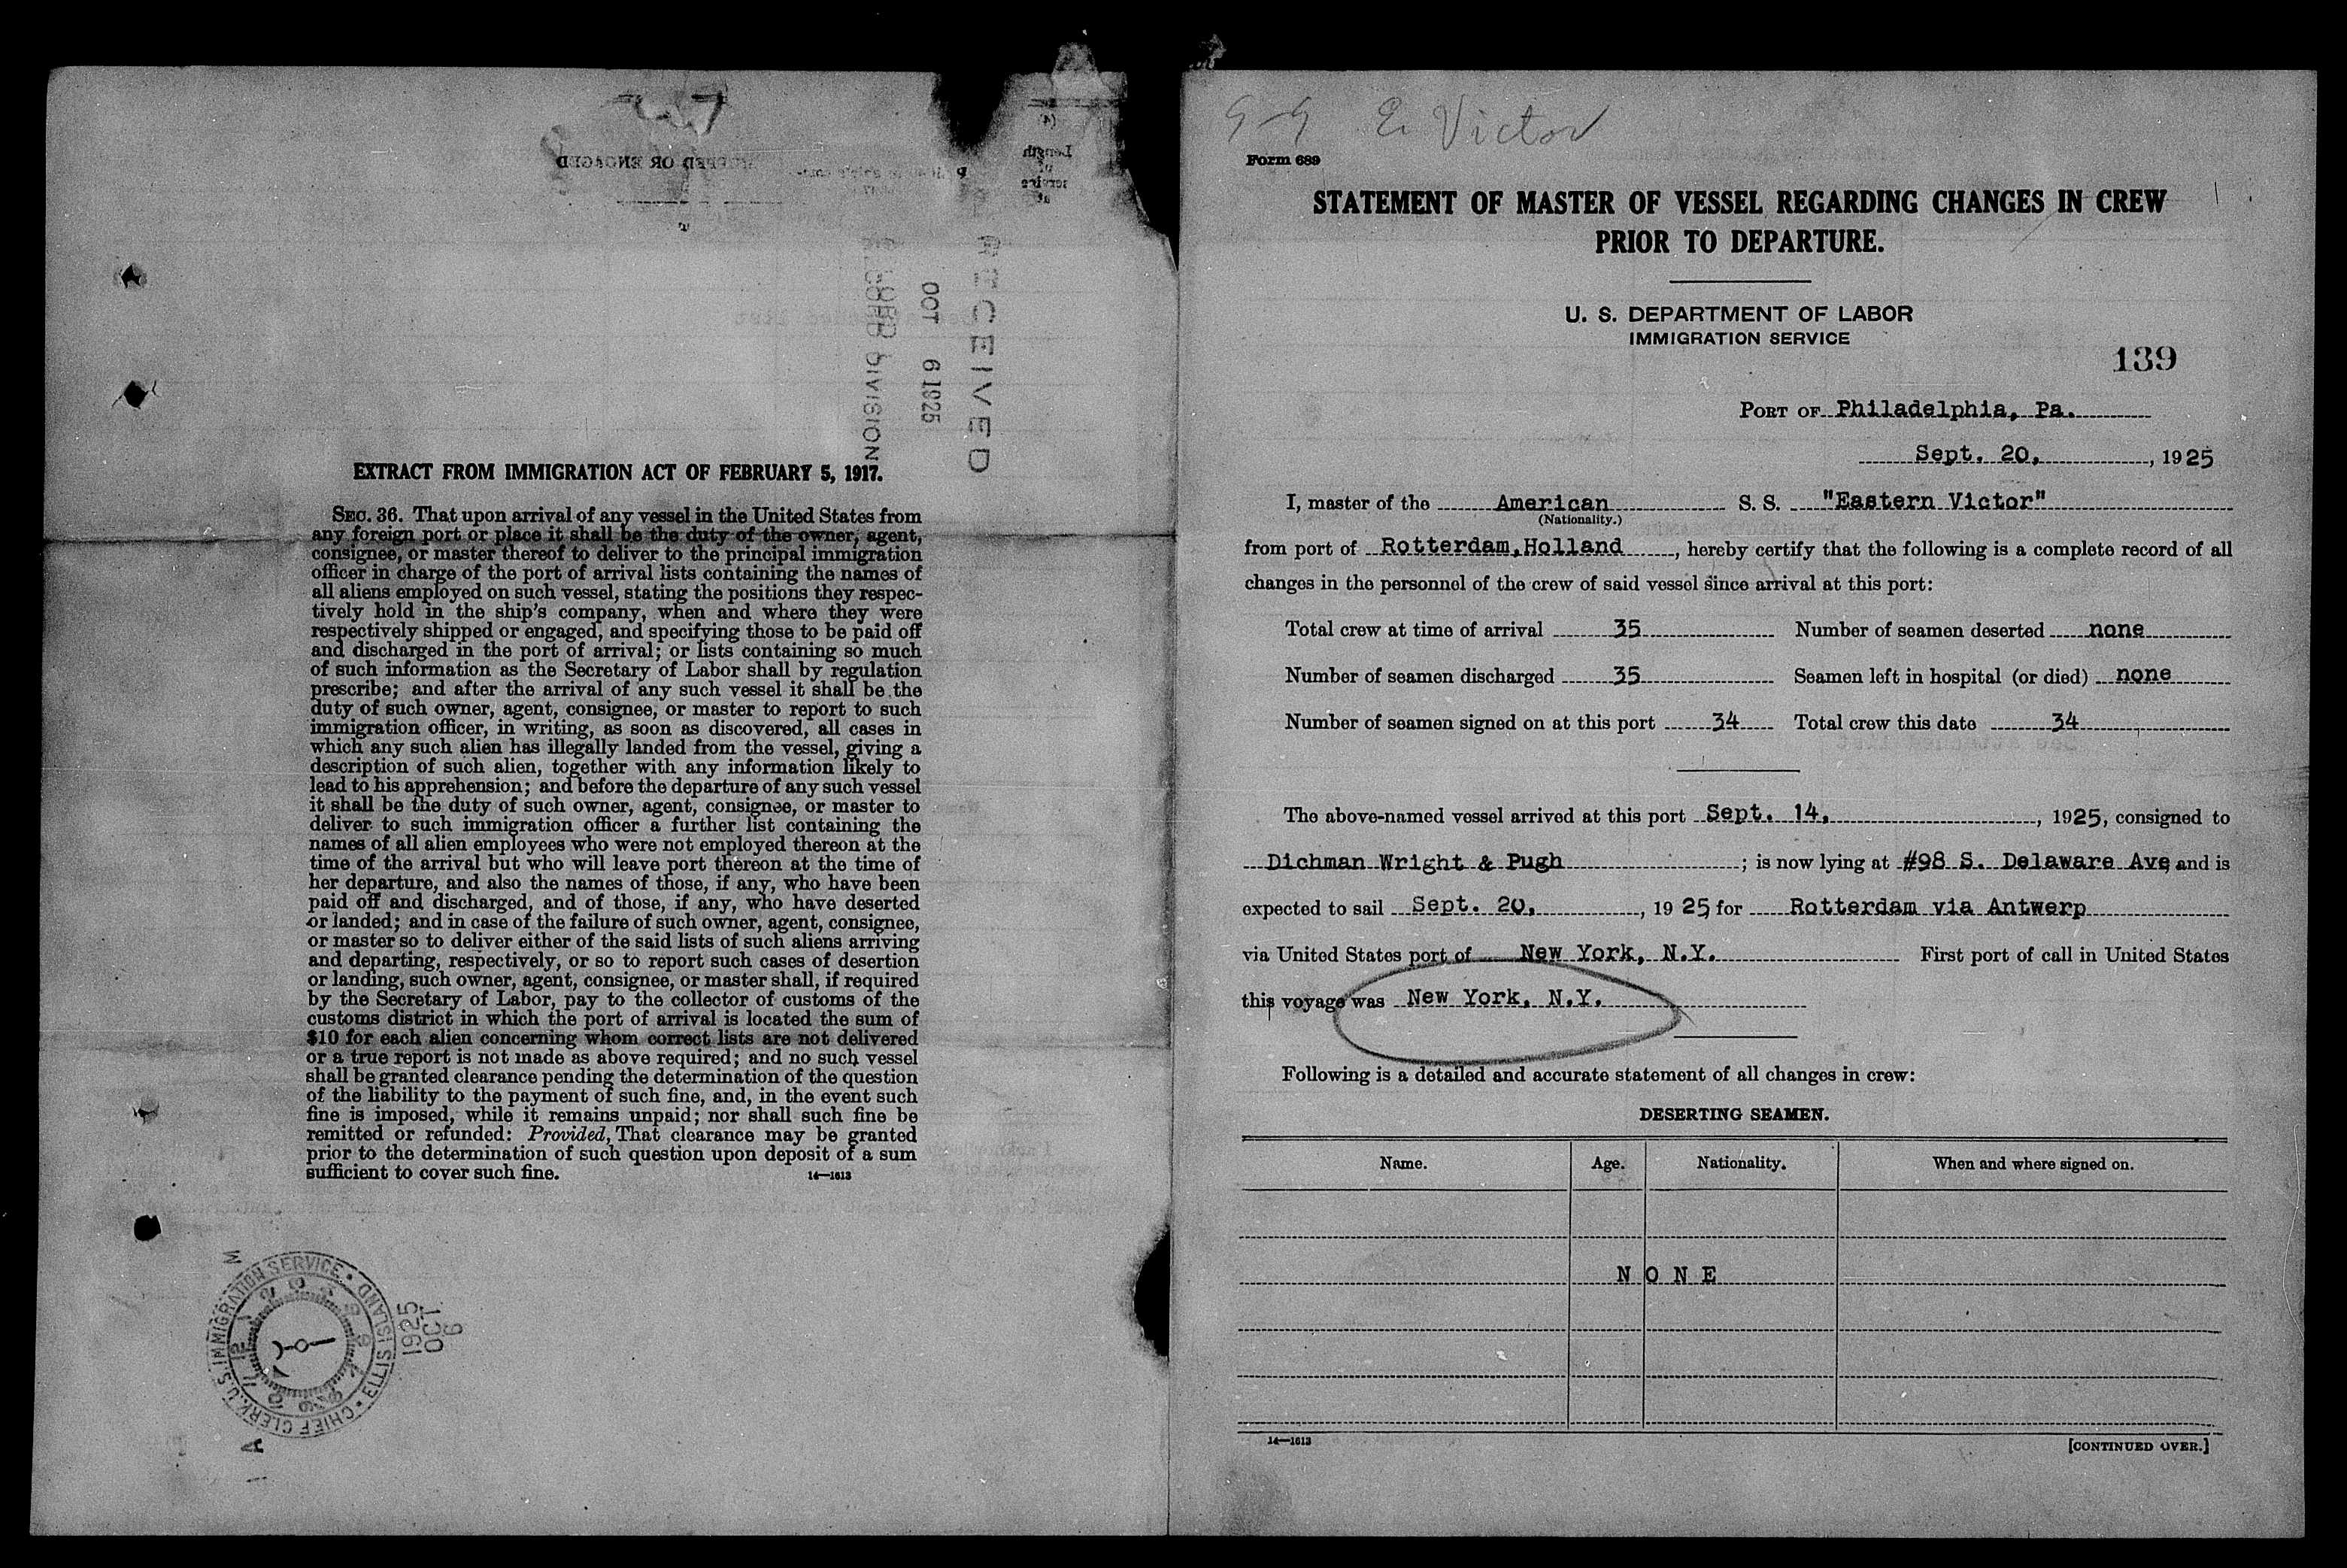 OR ENGAGED
(4)
Length
of
service
at
RECEIVED
OCT 6 1925
DIVISION
EXTRACT FROM IMMIGRATION ACT OF FEBRUARY 5, 1917.
SEC. 36. That upon arrival of any vessel in the United States from
any foreign port or place it shall be the duty of the owner, agent,
consignee, or master thereof to deliver to the principal immigration
officer in charge of the port of arrival lists containing the names of
all aliens employed on such vessel, stating the positions they respec-
tively hold in the ship's company, when and where they were
respectively shipped or engaged, and specifying those to be paid off
and discharged in the port of arrival; or lists containing so much
of such information as the Secretary of Labor shall by regulation
prescribe; and after the arrival of any such vessel it shall be the
duty of such owner, agent, consignee, or master to report to such
immigration officer, in writing, as soon as discovered, all cases in
which any such alien has illegally landed from the vessel, giving a
description of such alien, together with any information likely to
lead to his apprehension; and before the departure of any such vessel
it shall be the duty of such owner, agent, consignee, or master to
deliver to such immigration officer a further list containing the
names of all alien employees who were not employed thereon at the
time of the arrival but who will leave port thereon at the time of
her departure, and also the names of those, if any, who have been
paid off and discharged, and of those, if any, who have deserted
or landed; and in case of the failure of such owner, agent, consignee,
or master so to deliver either of the said lists of such aliens arriving
and departing, respectively, or so to report such cases of desertion
or landing, such owner, agent, consignee, or master shall, if required
by the Secretary of Labor, pay to the collector of customs of the
customs district in which the port of arrival is located the sum of
$10 for each alien concerning whom correct lists are not delivered
or a true report is not made as above required; and no such vessel
shall be granted clearance pending the determination of the question
of the liability to the payment of such fine, and, in the event such
fine is imposed, while it remains unpaid; nor shall such fine be
remitted or refunded: Provided, That clearance may be granted
prior to the determination of such question upon deposit of a sum
sufficient to cover such fine. 14—1613
CHIEF CLERK, U.S. IMMIGRATION SERVICE • ELLIS ISLAND •
1925
OCT
6
A M
E. Victor
Form 689
STATEMENT OF MASTER OF VESSEL REGARDING CHANGES IN CREW
PRIOR TO DEPARTURE.
U. S. DEPARTMENT OF LABOR
IMMIGRATION SERVICE
139
PORT OF Philadelphia, Pa.
Sept. 20, , 1925
I, master of the American S. S. "Eastern Victor"
(Nationality.)
from port of Rotterdam,Holland , hereby certify that the following is a complete record of all
changes in the personnel of the crew of said vessel since arrival at this port:
Total crew at time of arrival 35 Number of seamen deserted none
Number of seamen discharged 35 Seamen left in hospital (or died) none
Number of seamen signed on at this port 34 Total crew this date 34
The above-named vessel arrived at this port Sept. 14, , 1925, consigned to
Dichman Wright & Pugh ; is now lying at #98 S. Delaware Ave, and is
expected to sail Sept. 20, , 1925 for Rotterdam via Antwerp
via United States port of New York, N.Y. First port of call in United States
this voyage was New York, N.Y.
Following is a detailed and accurate statement of all changes in crew:
DESERTING SEAMEN.
Name. Age. Nationality. When and where signed on.
N O N E
14—1613 [CONTINUED OVER.]